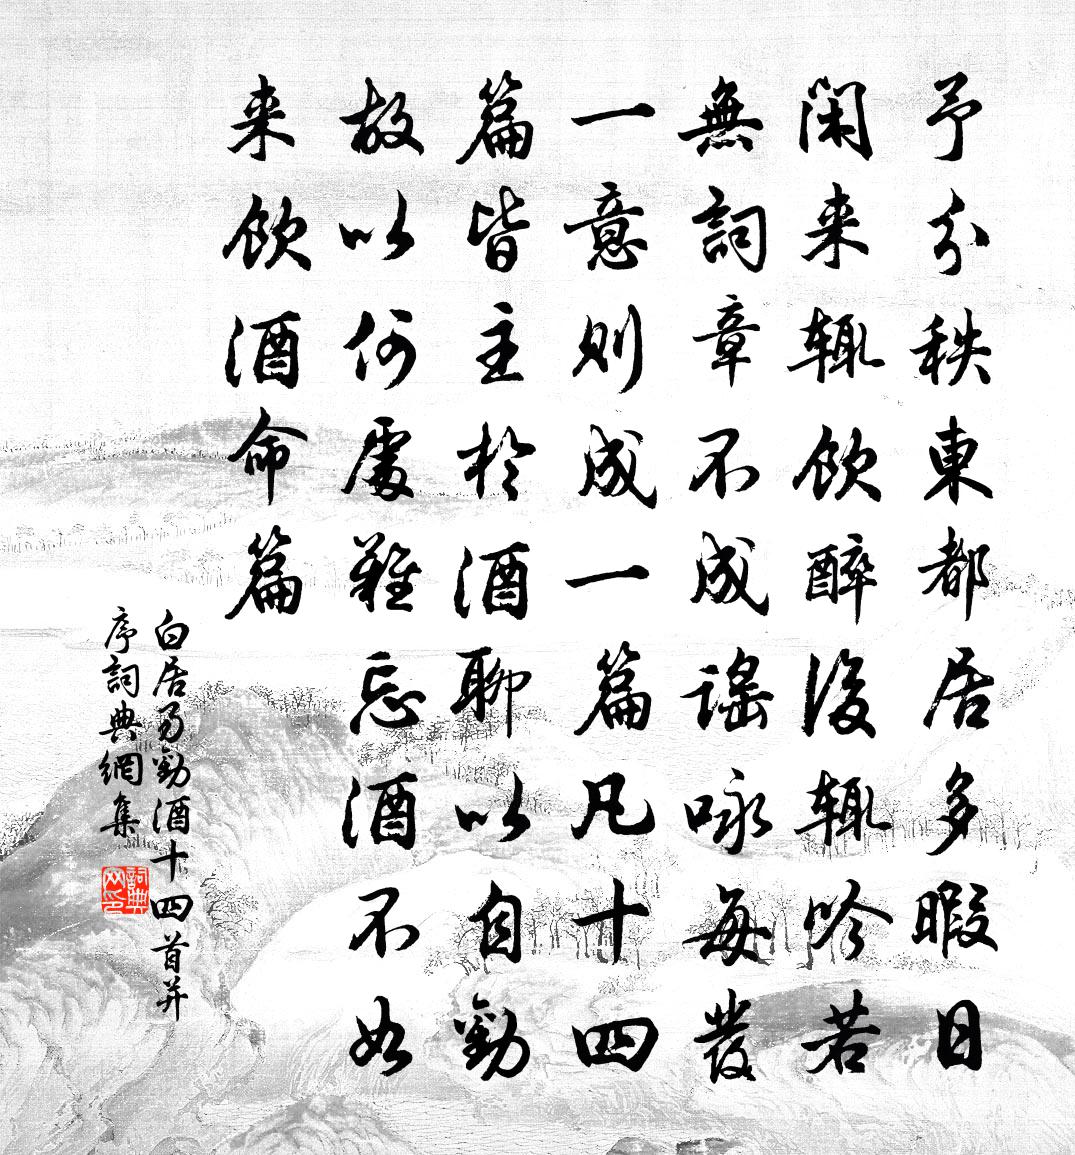 予分秩東都居多暇日
閑来輒飲醉後輒吟若
無詞章不成謠咏每發
一意則成一篇凡十四
篇皆主於酒聊以自勸
故以何處難忘酒不如
来飲酒命篇
白居易勸酒十四首并
序詞典網集
詞典网印